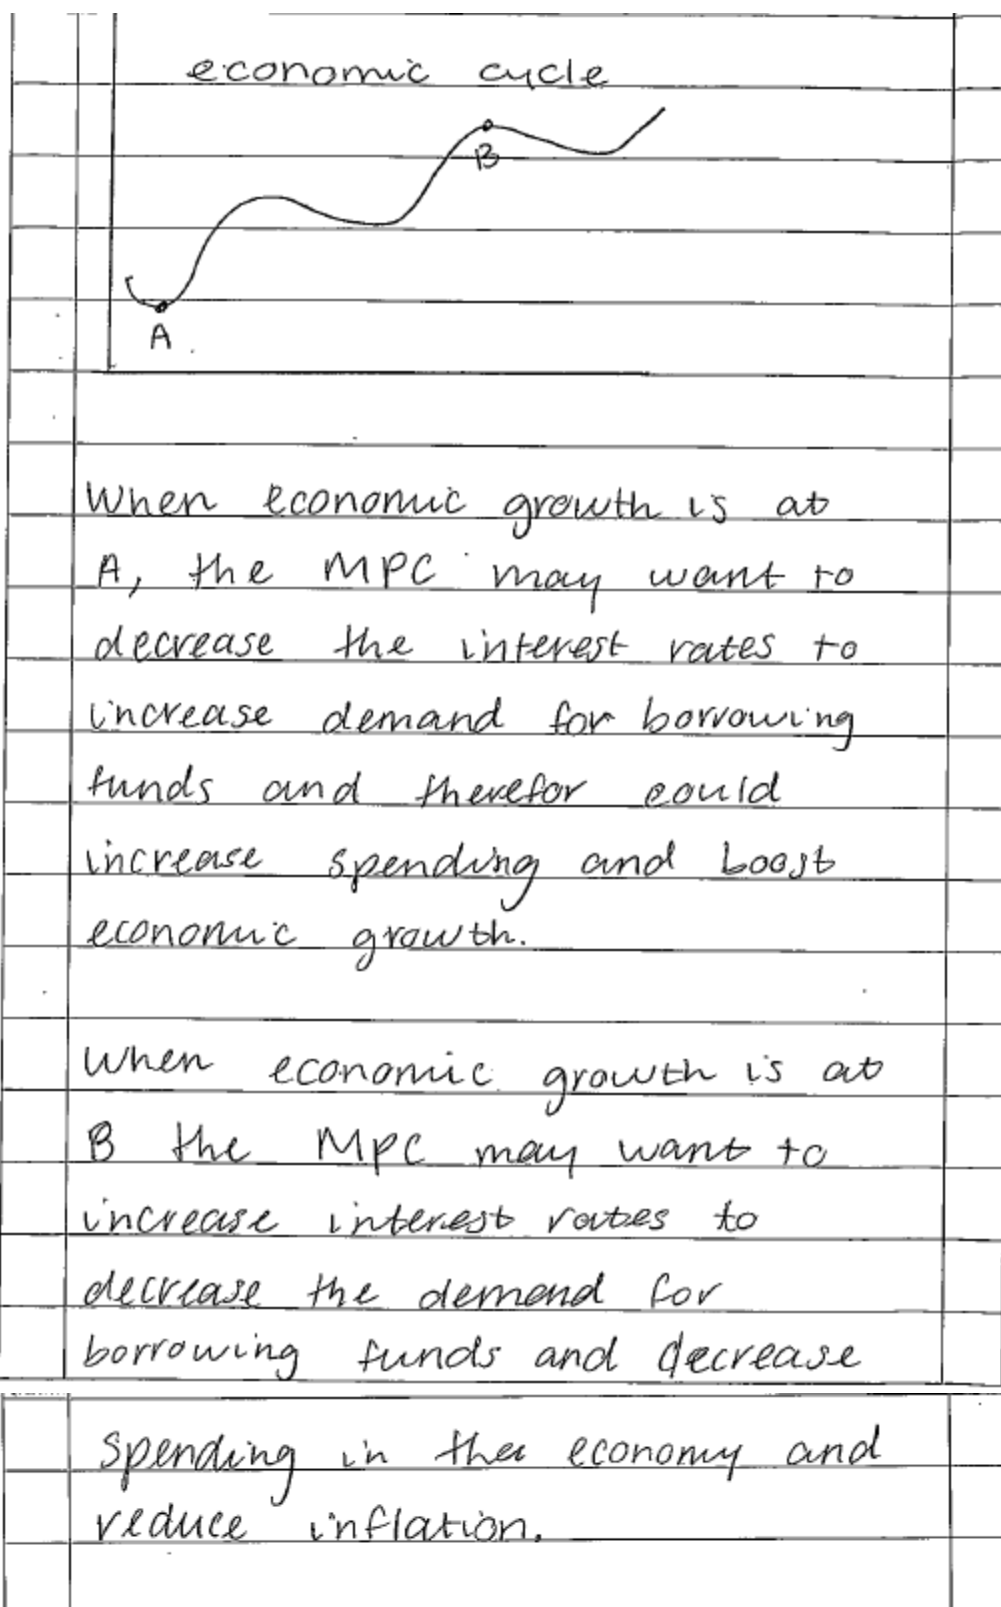 economic cycle
B
A
When economic growth is at
A, the MPC may want to
decrease the interest rates to
increase demand for borrowing
funds and therefor could
increase spending and boost
economic growth.
When economic growth is at
B the MPC may want to
increase interest rates to
decrease the demand for
borrowing funds and decrease
spending in the economy and
reduce inflation.